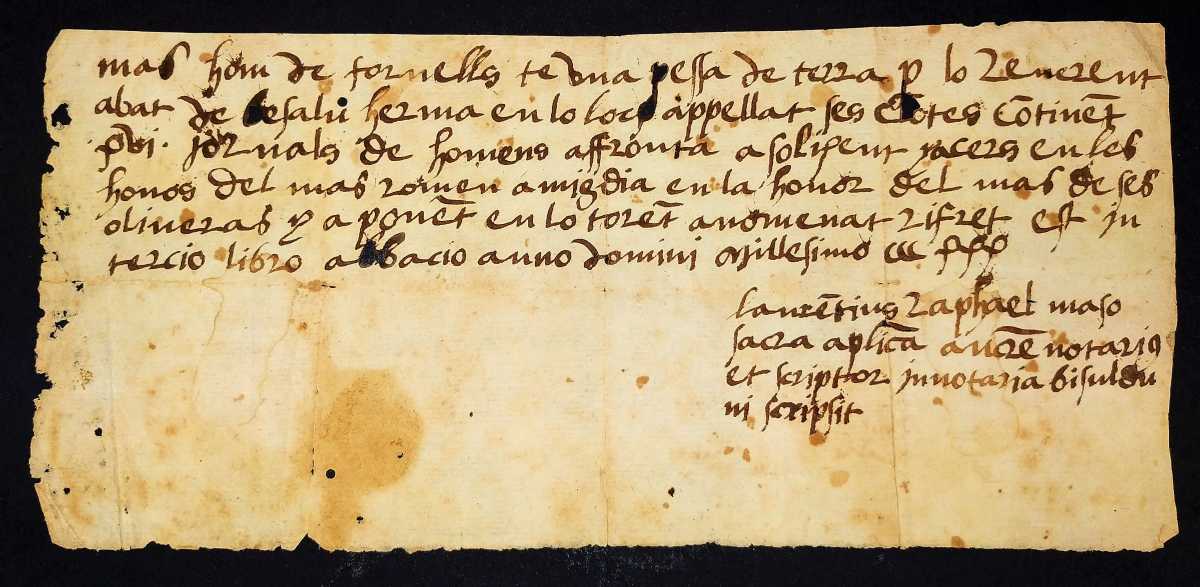 mas hom de fornells te vna pessa de terra p lo Reuerent
abat de besalu herma en lo loch appellat ses Cōtes Cōtinēt
jornals de homens affronta a solixent y a cers en les
honos del mas romeu a migdia en la honor del mas de ses
oliueras y a ponēt en lo torēt anomenat rifret est in
tercio libro abbacio anno domini Millesimo ccc
laurētius Raphael maso
sacra aplīca auctē notarius
et scriptor in notaria bisuldu
ni scripsit